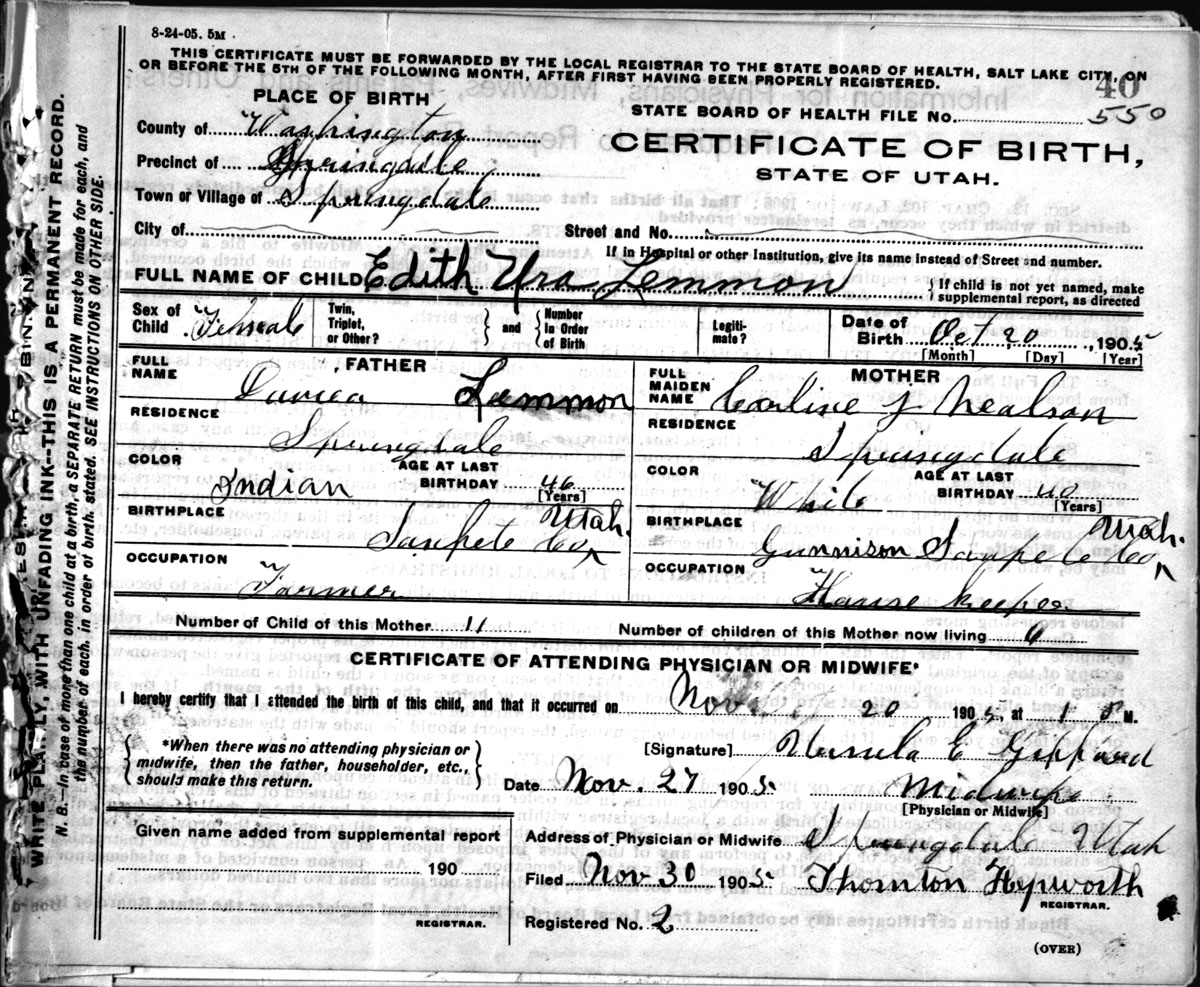 8-24-05. 5M.
THIS CERTIFICATE MUST BE FORWARDED BY THE LOCAL REGISTRAR TO THE STATE BOARD OF HEALTH, SALT LAKE CITY, ON
OR BEFORE THE 5TH OF THE FOLLOWING MONTH, AFTER FIRST HAVING BEEN PROPERLY REGISTERED.
40
PLACE OF BIRTH
STATE BOARD OF HEALTH FILE No. 550
County of Washington
CERTIFICATE OF BIRTH,
Precinct of Springdale
STATE OF UTAH.
Town or Village of Springdale
City of
Street and No.
If in Hospital or other Institution, give its name instead of Street and number.
FULL NAME OF CHILD Edith Lemmon
If child is not yet named, make
supplemental report, as directed
Sex of Child Female
Twin, Triplet, or Other?
and
Number In Order of Birth
Legiti-mate?
Date of Birth Oct 20, 1905
[Month] [Day] [Year]
FATHER
FULL NAME Lemmon
RESIDENCE
Springdale
COLOR Indian
AGE AT LAST BIRTHDAY 46
[Years]
BIRTHPLACE
Sanpete Co Utah.
OCCUPATION
Farmer
MOTHER
FULL MAIDEN NAME Nealson
RESIDENCE
Springdale
COLOR White
AGE AT LAST BIRTHDAY 40
[Years]
BIRTHPLACE
Gunnison Sanpete Co Utah.
OCCUPATION
House Keeper
Number of Child of this Mother 11
Number of children of this Mother now living
CERTIFICATE OF ATTENDING PHYSICIAN OR MIDWIFE*
I hereby certify that I attended the birth of this child, and that it occurred on Nov 20 1905, at 1 M.
*When there was no attending physician or
midwife, then the father, householder, etc.,
should make this return.
[Signature] Ursula E Gifford
Date Nov. 27 1905
Midwife
[Physician or Midwife]
Given name added from supplemental report
190
REGISTRAR.
Address of Physician or Midwife Springdale Utah
Filed Nov 30 1905 Thornton Hepworth
REGISTRAR.
Registered No. 2
(OVER)
WRITE PLAINLY, WITH UNFADING INK--THIS IS A PERMANENT RECORD.
N. B.--In case of more than one child at a birth, a SEPARATE RETURN must be made for each, and
the number of each, in order of birth, stated. SEE INSTRUCTIONS ON OTHER SIDE.